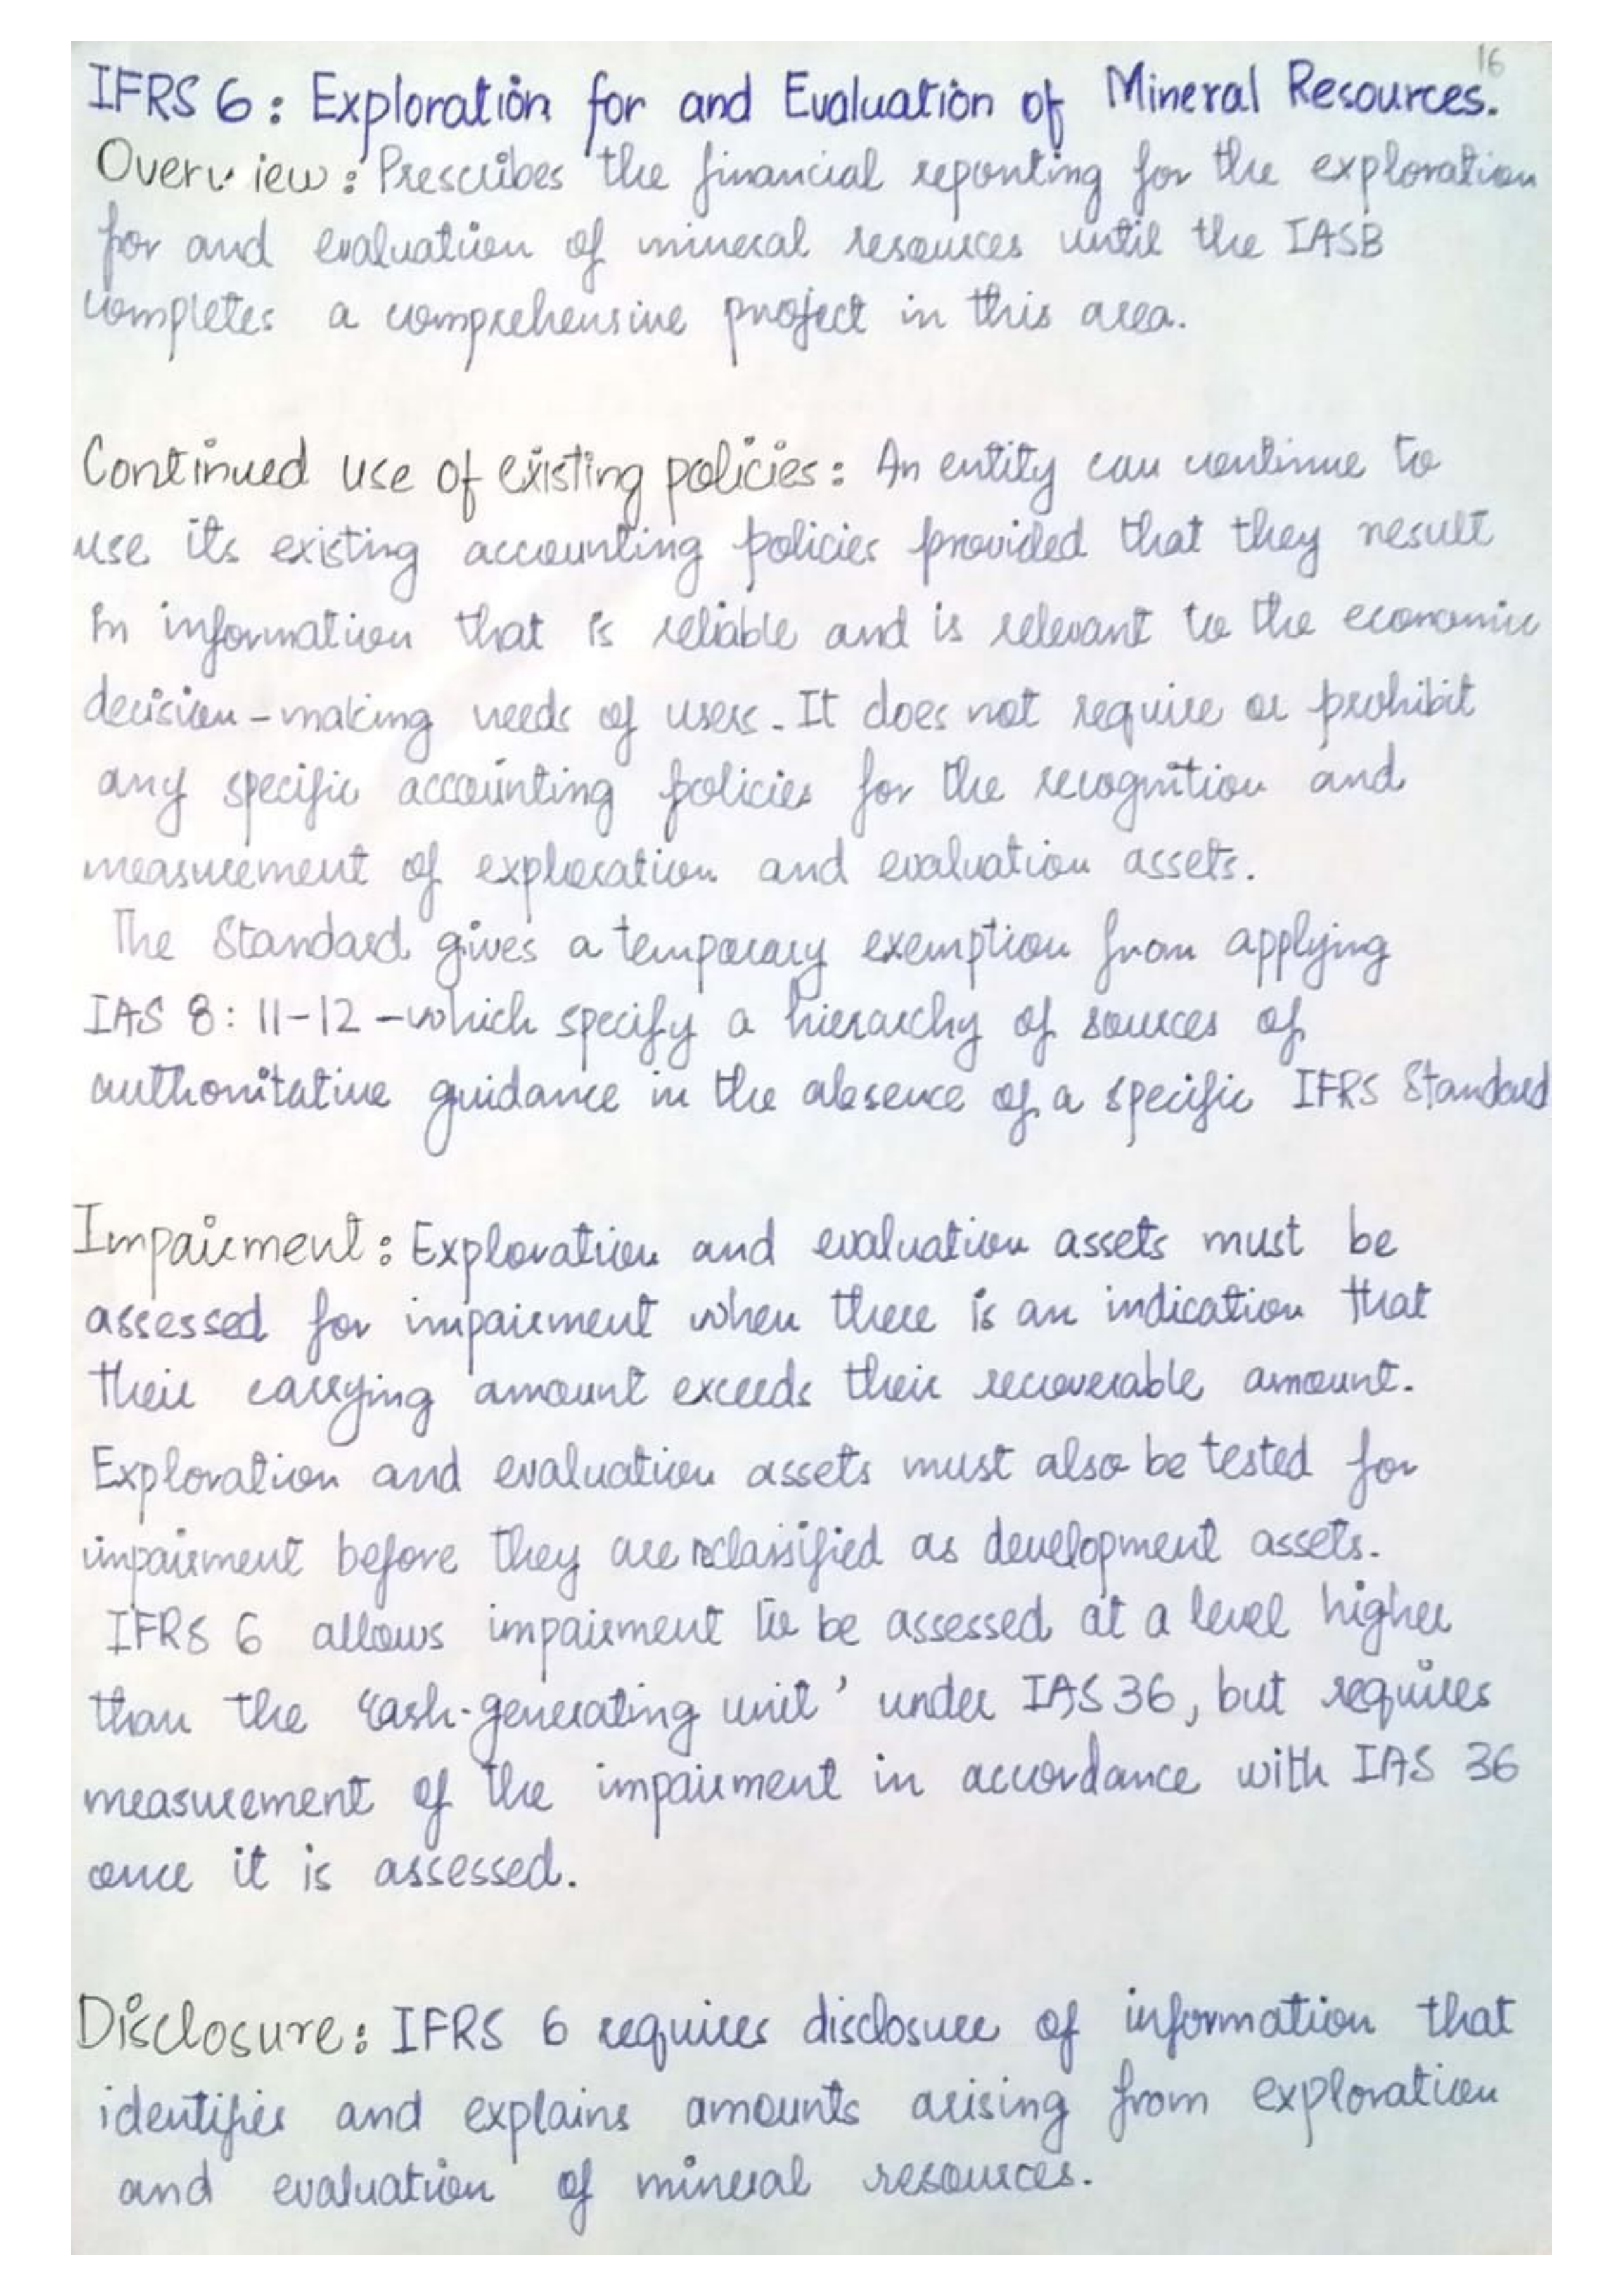 16
IFRS 6: Exploration for and Evaluation of Mineral Resources.
Overview: Prescribes the financial reporting for the exploration
for and evaluation of mineral resources until the IASB
completes a comprehensive project in this area.
Continued use of existing policies: An entity can continue to
use its existing accounting policies provided that they result
in information that is reliable and is relevant to the economic
decision-making needs of users. It does not require or prohibit
any specific accounting policies for the recognition and
measurement of exploration and evaluation assets.
The Standard gives a temporary exemption from applying
IAS 8: 11-12 - which specify a hierarchy of sources of
authoritative guidance in the absence of a specific IFRS Standard
Impairment: Exploration and evaluation assets must be
assessed for impairment when there is an indication that
their carrying amount exceeds their recoverable amount.
Exploration and evaluation assets must also be tested for
impairment before they are reclassified as development assets.
IFRS 6 allows impairment to be assessed at a level higher
than the 'cash-generating unit' under IAS 36, but requires
measurement of the impairment in accordance with IAS 36
once it is assessed.
Disclosure: IFRS 6 requires disclosure of information that
identifies and explains amounts arising from exploration
and evaluation of mineral resources.